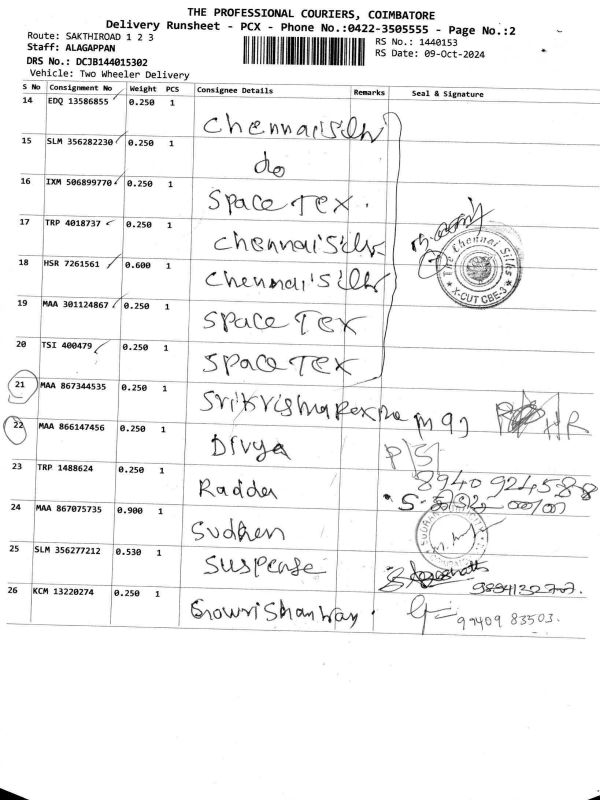 THE PROFESSIONAL COURIERS, COIMBATORE
Delivery Runsheet - PCX - Phone No.:0422-3505555 - Page No.:2
Route: SAKTHIROAD 1 2 3
RS No.: 1440153
Staff: ALAGAPPAN
RS Date: 09-Oct-2024
DRS No.: DCJB144015302
Vehicle: Two Wheeler Delivery
S No Consignment No Weight PCS Consignee Details Remarks Seal & Signature
14 EDQ 13586855 0.250 1 Chennai Silk
15 SLM 356282230 0.250 1 do
16 IXM 506899770 0.250 1 Space Tex.
17 TRP 4018737 0.250 1 Chennai Silk
18 HSR 7261561 0.600 1 Chennai Silk
The Chennai Silks
X-CUT CBE-3
19 MAA 301124867 0.250 1 Space Tex
20 TSI 400479 0.250 1 Space Tex
21 MAA 867344535 0.250 1 HR
22 MAA 866147456 0.250 1 Divya P/S
23 TRP 1488624 0.250 1 Radda 8940924588
24 MAA 867075735 0.900 1
25 SLM 356277212 0.530 1 Suspense 9894132707.
26 KCM 13220274 0.250 1 Gowri Shankar. 99409 83503.